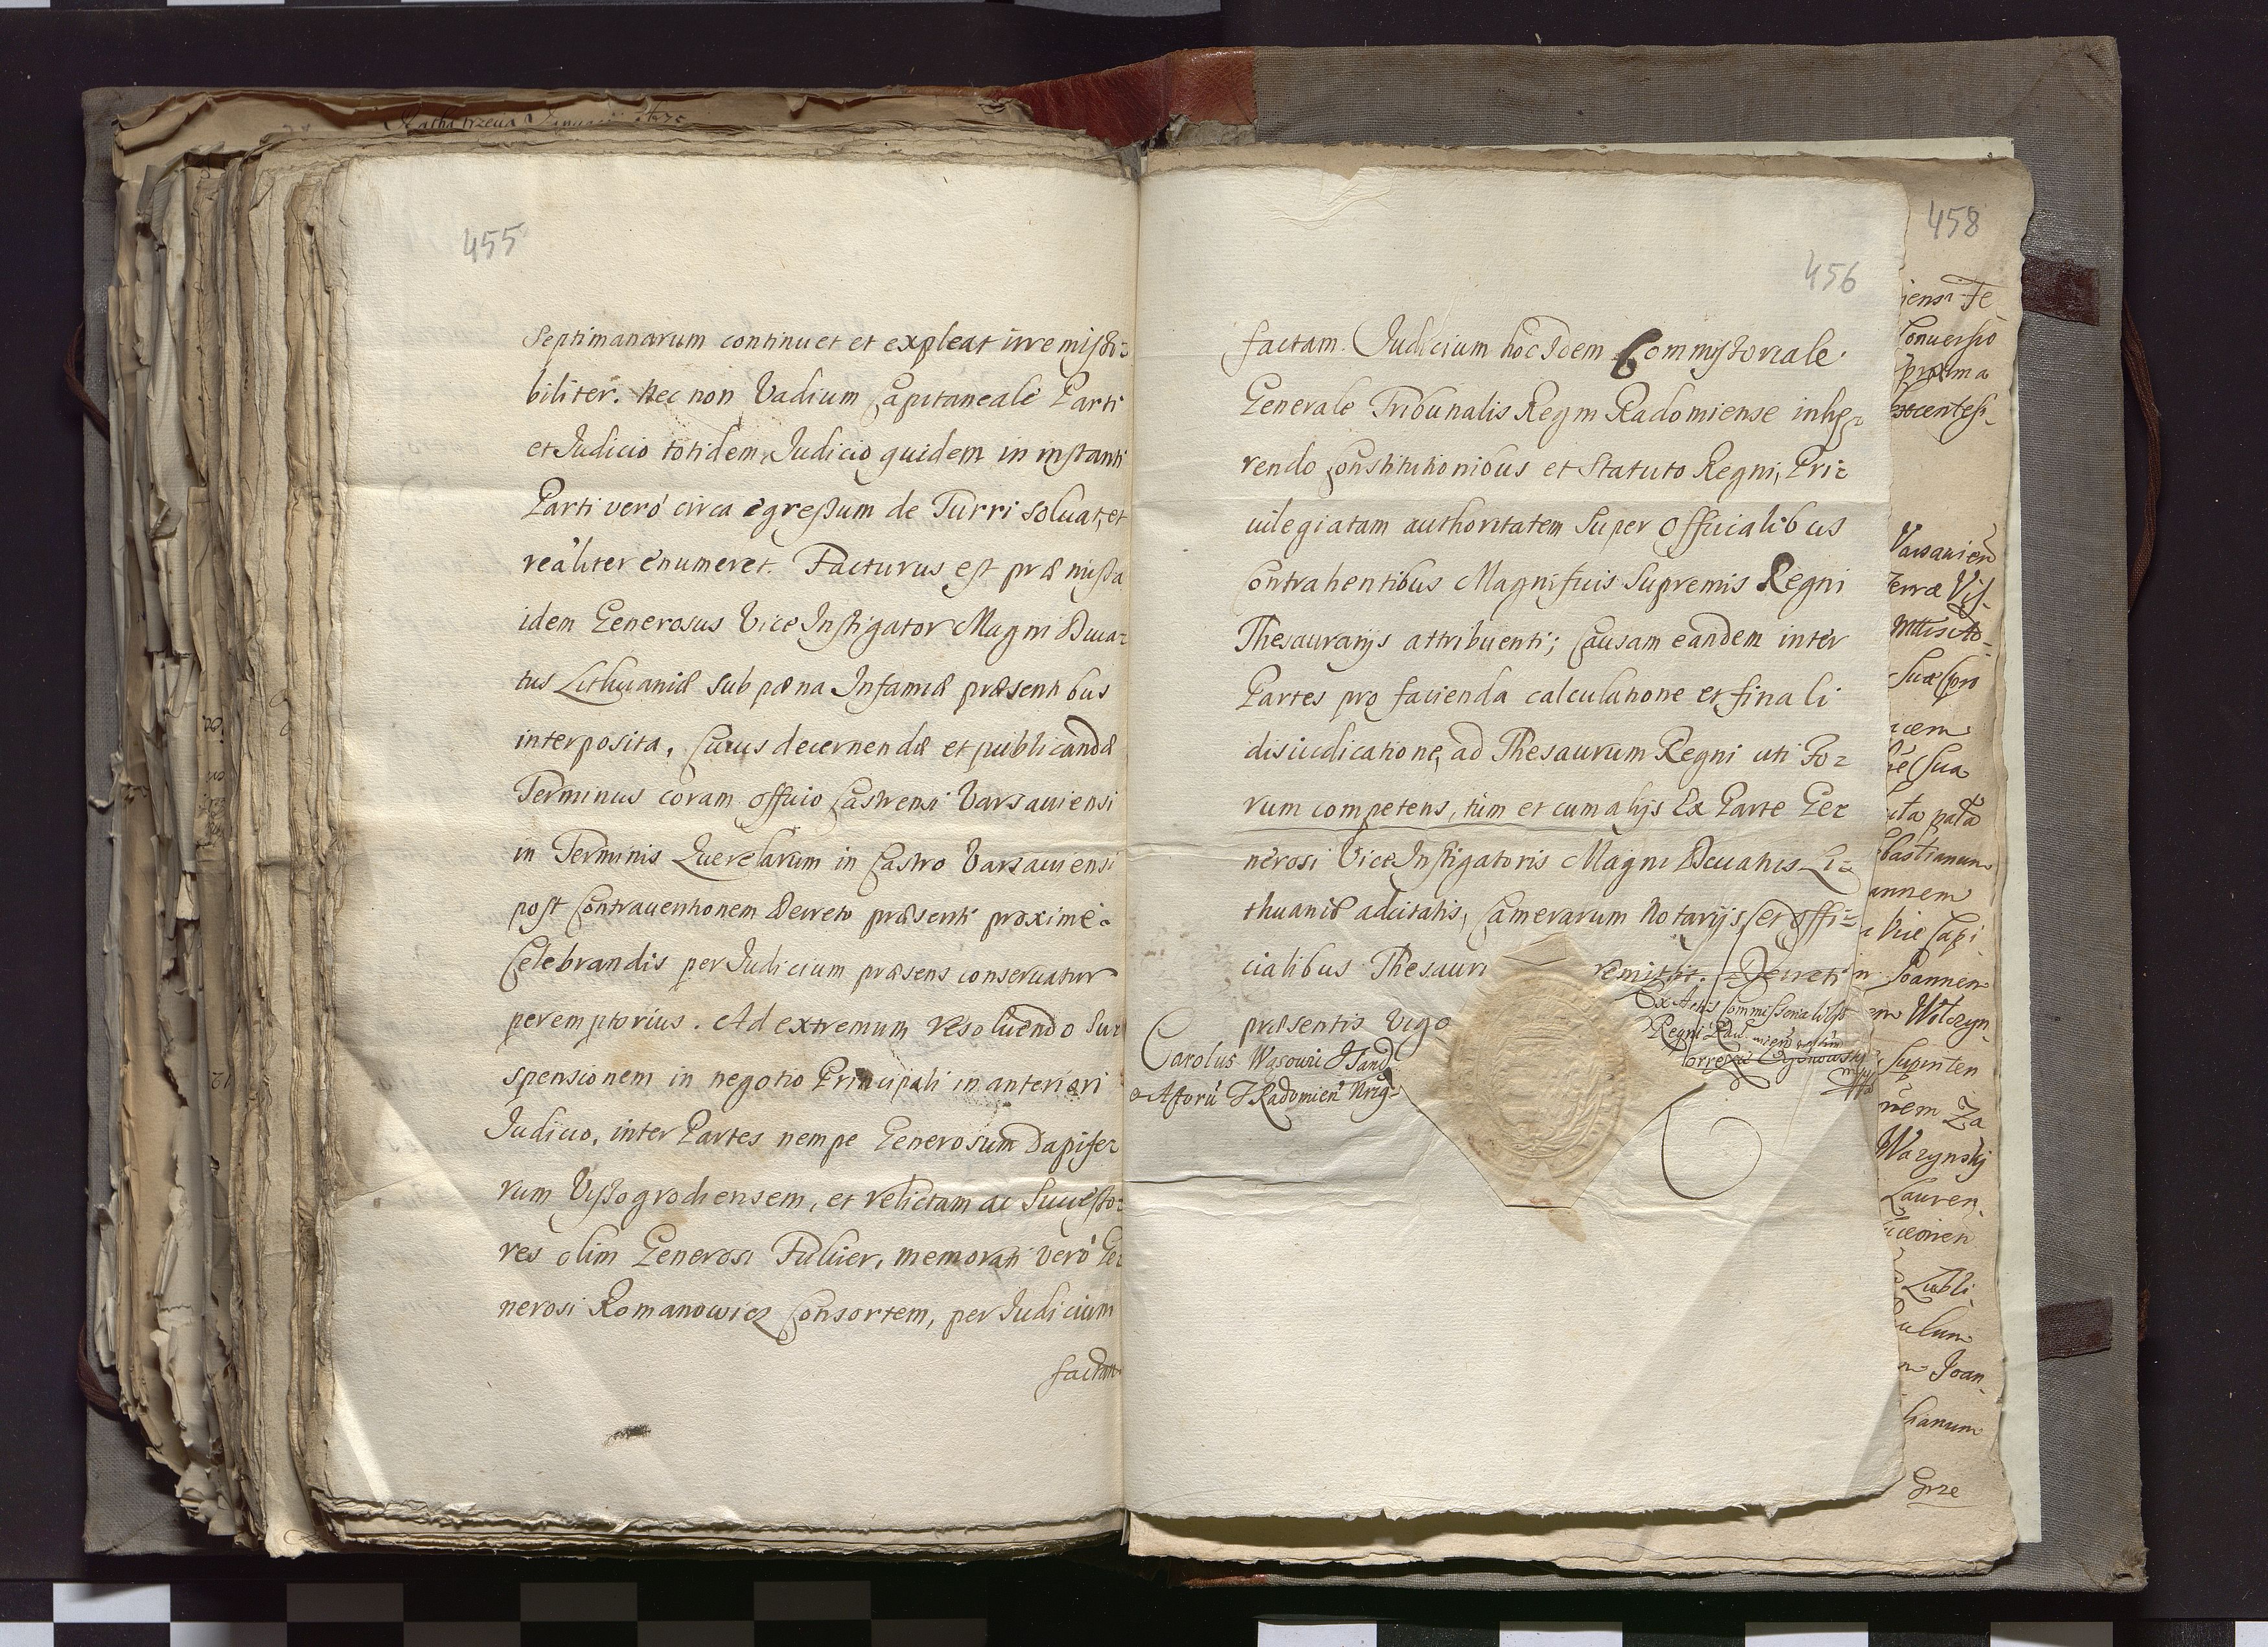 455
Septimanarum continuet et expleat irremissi=
biliter. Nec non Vadium Capitaneale Parti
et Iudicio totidem, Iudicio quidem in instanti
Parti verò circa egressum de Turri soluat, et
reàliter enumeret. Facturus est præmissa
idem Generosus Vice Instigator Magni Duca=
tus Lithuaniæ sub pæna Infamiæ præsentibus
interposita, Cuius decernendæ et publicandæ
Terminus coram officio Castrensi Varsauiensi
in Terminis Querelarum in Castro Varsauiensi
post Contrauentionem Decreto præsenti proximè
Celebrandis per Iudicium præsens conseruatur
peremptorius. Ad extremum resoluendo Su=
spensionem in negotio Principali in anteriori
Iudicio, inter Partes nempe Generosum Dapife=
rum Vissogrodiensem, et relictam ac Successo=
res olim Generosi Fuluier, memorati verò Ge=
nerosi Romanowicz Consortem, per Iudicium
factam
456
factam. Iudicium hoc Idem Commissoriale
Generale Tribunalis Regni Radomiense inhæ=
rendo Constitutionibus et Statuto Regni, Pri=
uilegiatam authoritatem super Officialibus
Contrahentibus Magnificis Supremis Regni
Thesaurarijs attribuenti; Causam eandem inter
Partes pro facienda calculatione et finali
disiudicatione, ad Thesaurum Regni uti Fo=
rum competens, tùm et cum alijs Ex Parte Ge=
nerosi Vice Instigatoris Magni Ducatus Li=
thuaniæ adcitatis, Camerarum Notarijs, et Offi=
cialibus Thesauri remittit. Decreti
præsentis vigo
Ex Actis Commissorialibus
Regni Rado
Carolus Wąsowi
458
iensi Te
Conuersio
proxima
Varsauien
erræ Vis
suæ
icem
sua
bastianum
annem
Vice Capi
Joannem
Wilczyn
nem Za
Warynskij
Lauren
Lubli
ulum
Joan
lianum
Grze